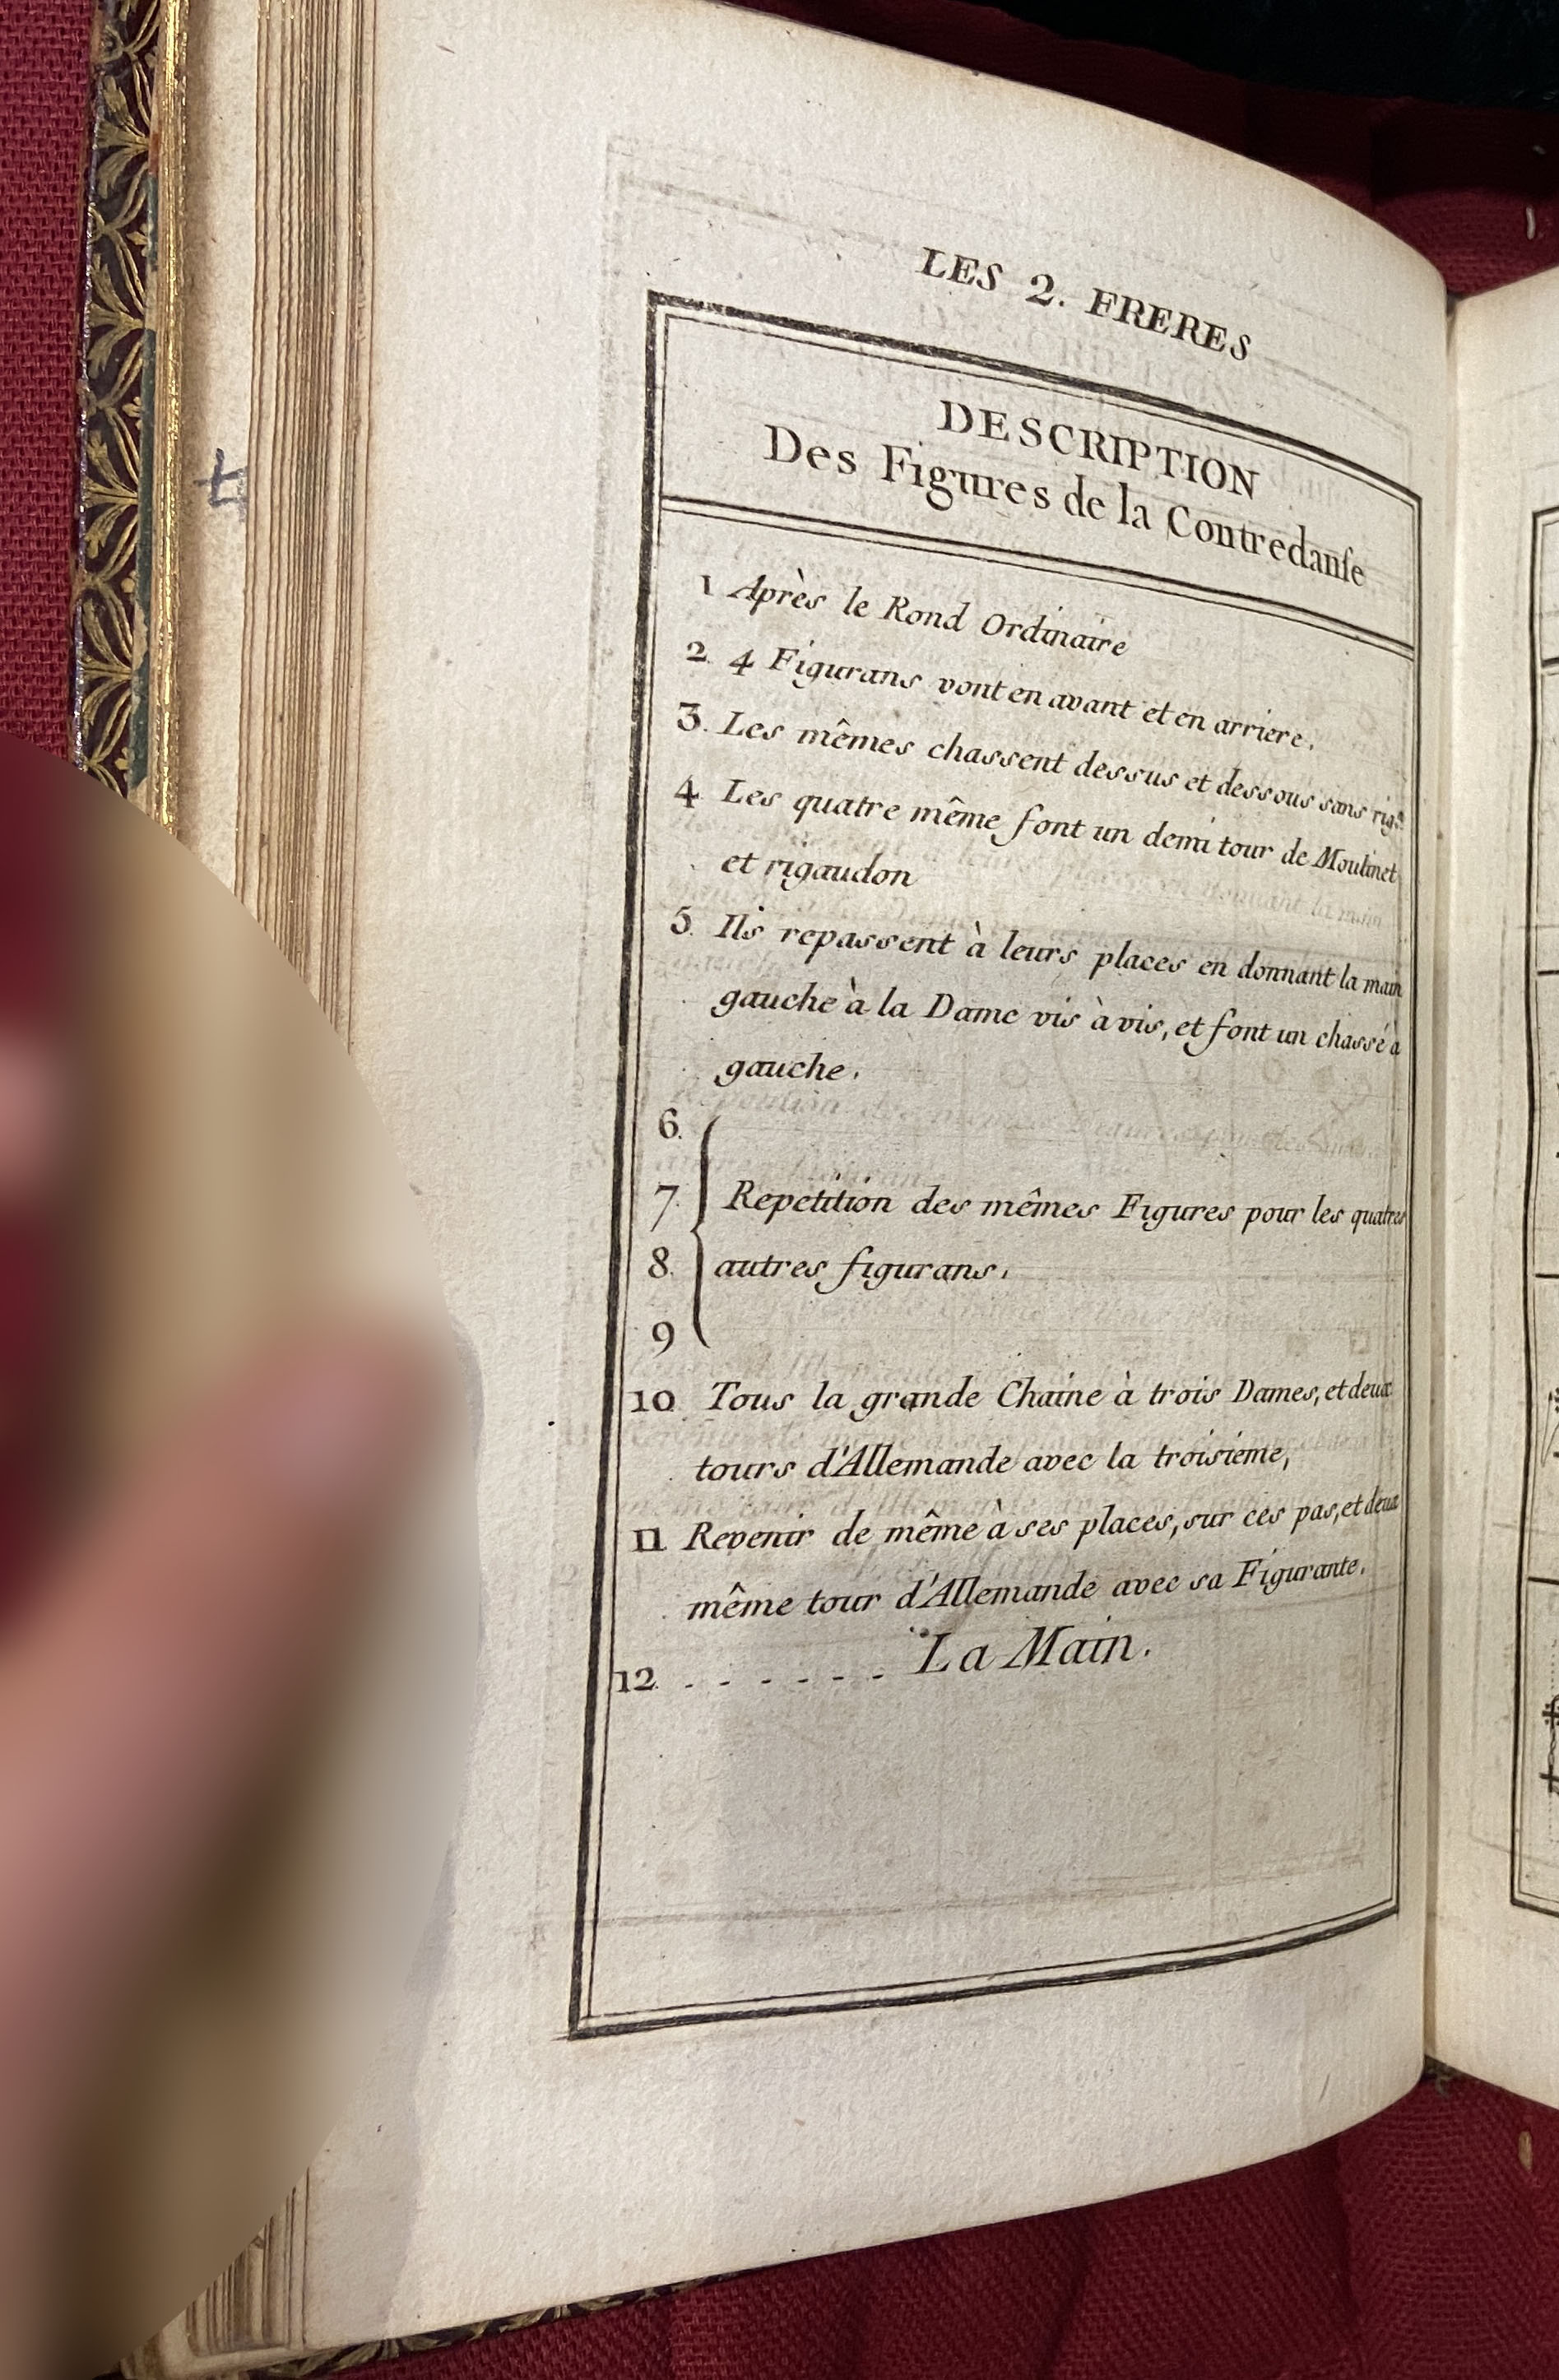 LES 2. FRERES
DESCRIPTION
Des Figures de la Contredanſe
1 Après le Rond Ordinaire
2. 4 Figurans vont en avant et en arriere.
3. Les mêmes chassent dessus et dessous sans
4 Les quatre même font un demi tour de Moulinet
et rigaudon
5. Ils repassent à leurs places en donnant la main
gauche à la Dame vis à vis, et font un chassé à
gauche.
6.
7. Repetition des mêmes Figures pour les quatres
8. autres figurans.
9
10. Tous la grande Chaine à trois Dames, et deux
tours d'Allemande avec la troisieme,
11 Revenir de même à ses places, sur ces pas, et deux
même tour d'Allemande avec sa Figurante.
12. - - - - - - La Main.